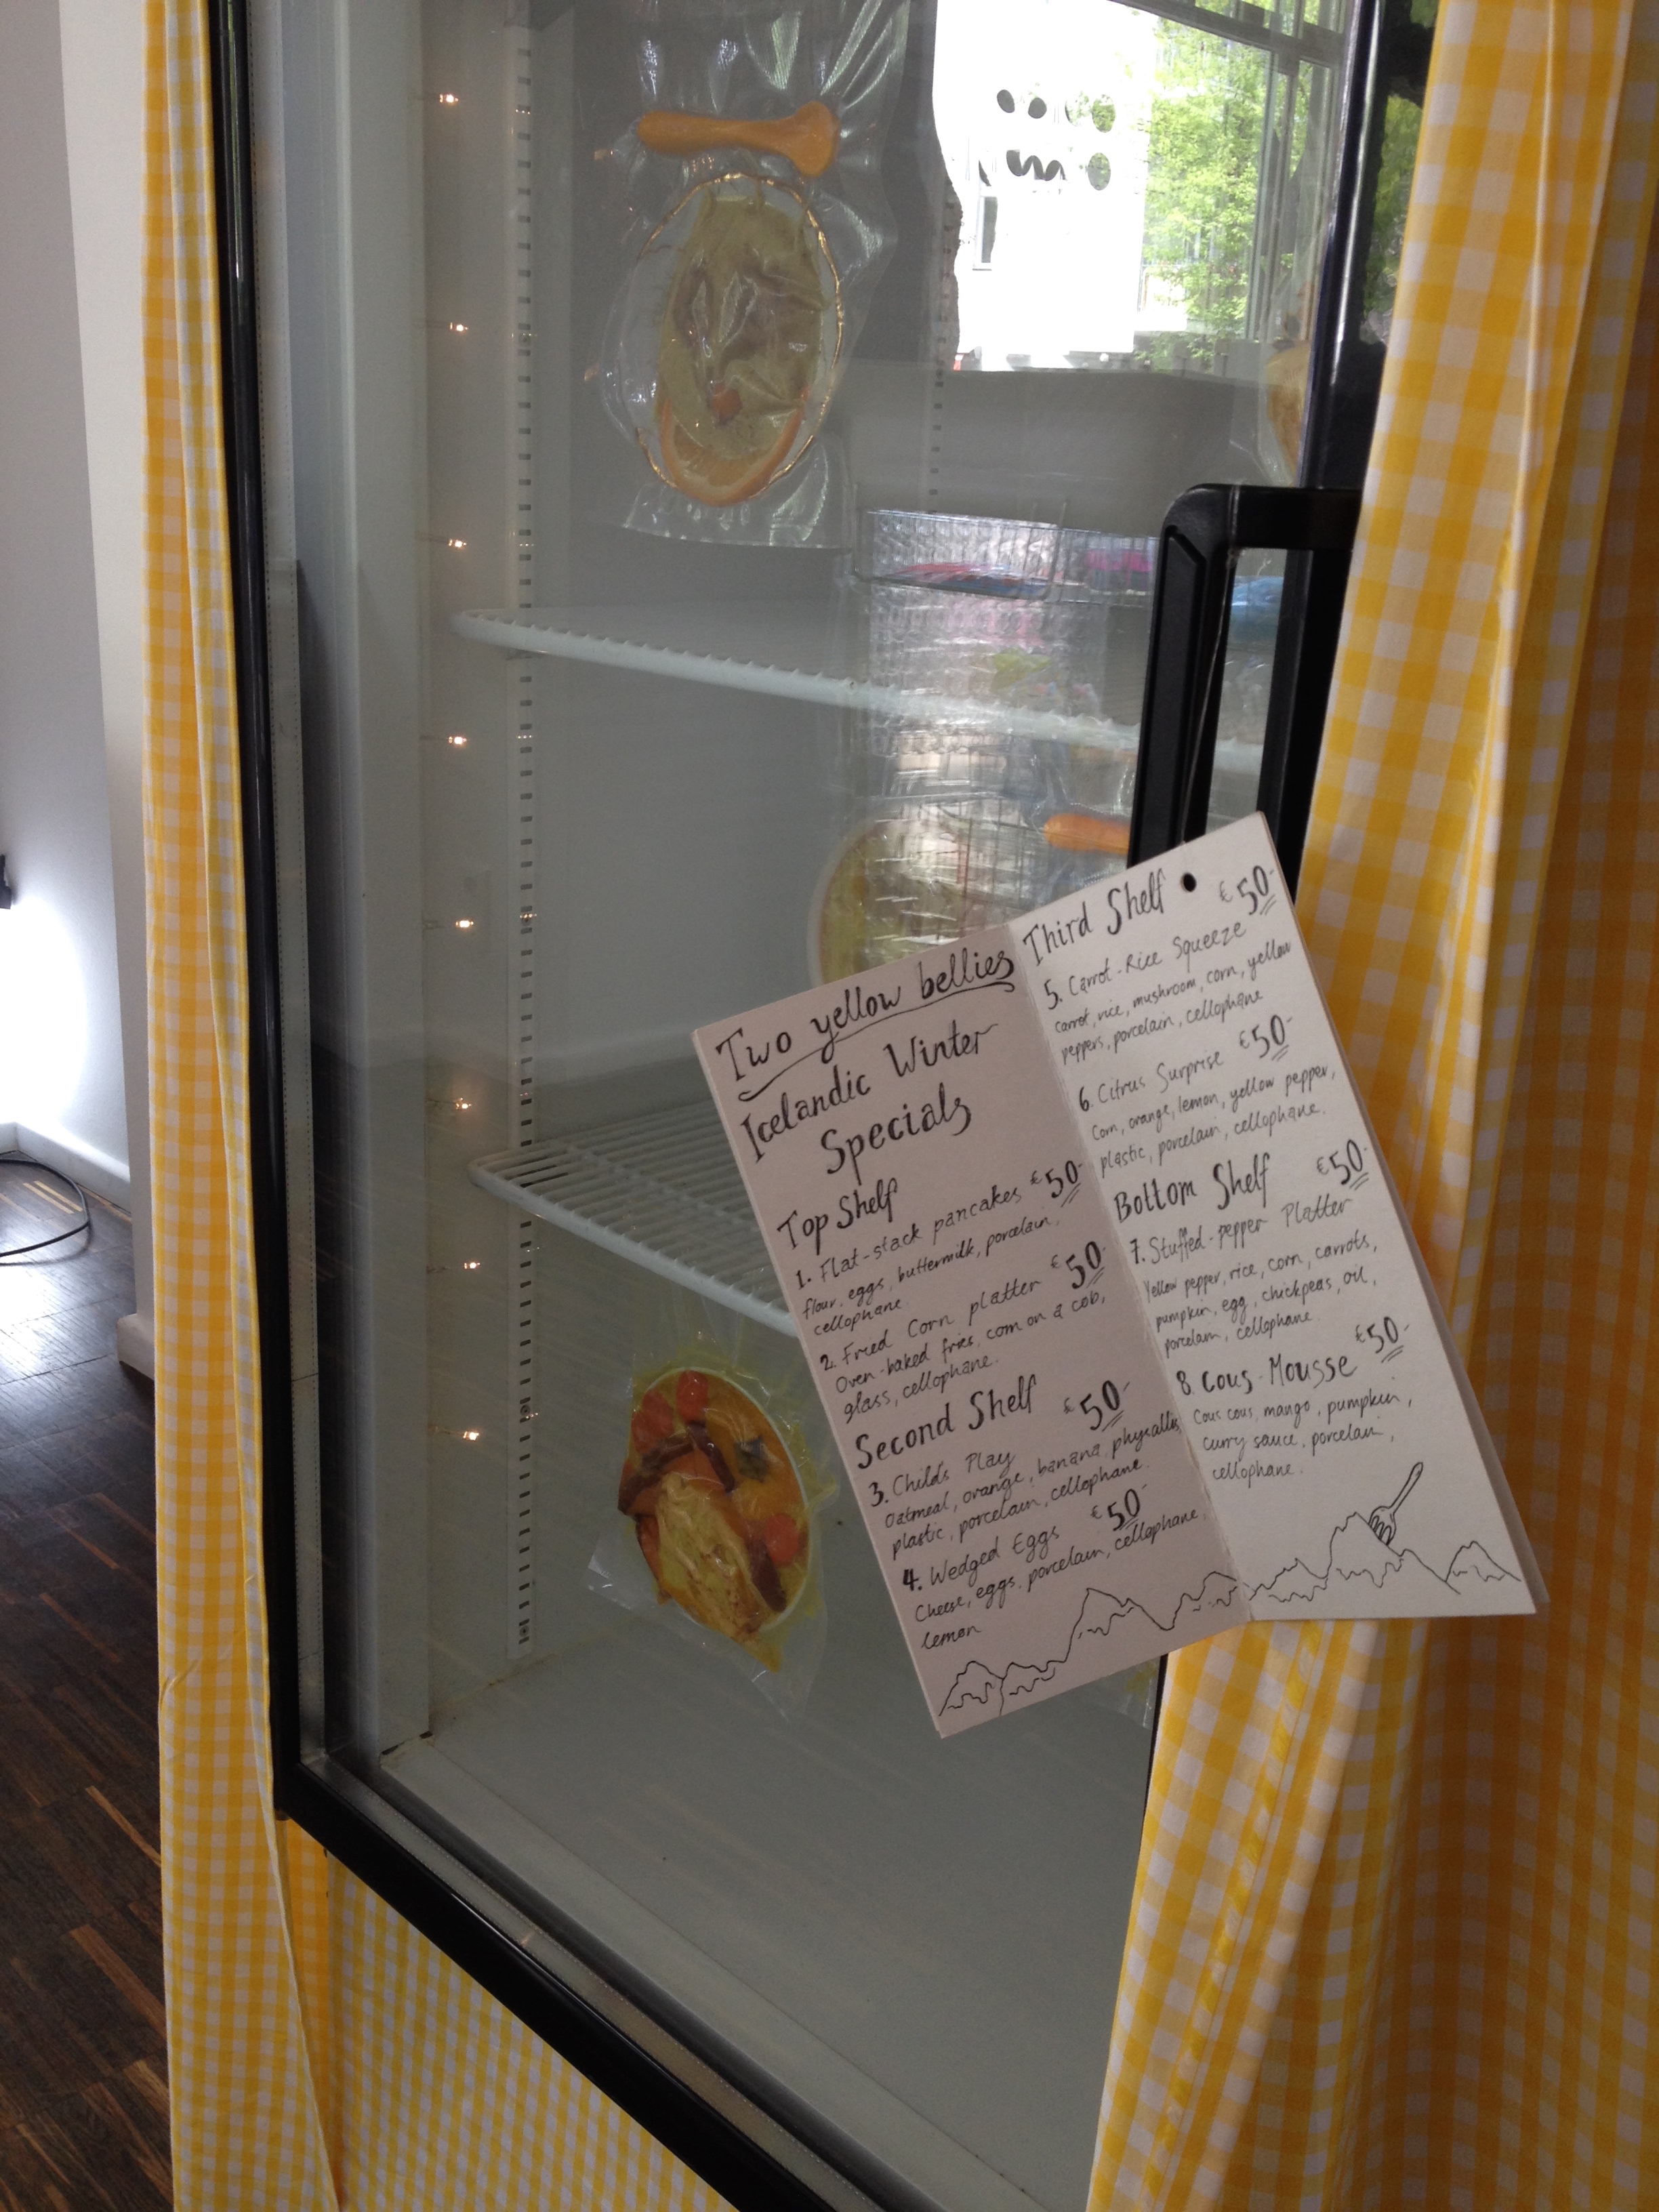 Two yellow bellies
Icelandic Winter
Specials
Top Shelf
1. Flat-stack pancakes €50-
flour, eggs, buttermilk, porcelain,
cellophane
2. Fried Corn platter €50-
Oven-baked fries, corn on a cob,
glass, cellophane.
Second Shelf
3. Childs Play €50-
Oatmeal, orange, banana, physallis,
plastic, porcelain, cellophane.
4. Wedged Eggs €50-
Cheese, eggs, porcelain, cellophane,
lemon
Third Shelf
5. Carrot-Rice Squeeze €50-
carrot, rice, mushroom, corn, yellow
peppers, porcelain, cellophane
6. Citrus Surprise €50-
Corn, orange, lemon, yellow pepper,
plastic, porcelain, cellophane.
Bottom Shelf
7. Stuffed-pepper Platter €50-
Yellow pepper, rice, corn, carrots,
pumpkin, egg, chickpeas, oil,
porcelain, cellophane.
8. Cous-Mousse €50-
Cous cous, mango, pumpkin,
curry sauce, porcelain,
cellophane.